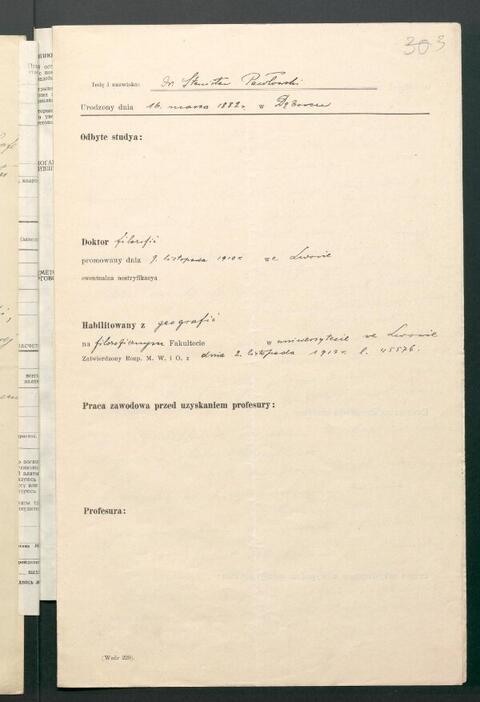 303
Imię i nazwisko: Dr. Stanisław Pawłowski
Urodzony dnia 16. marca 1882 r. w Dębowcu
Odbyte studya:
Doktor filozofii
promowany dnia 9. listopada 1910 r. we Lwowie
ewentualna nostryfikacya
Habilitowany z geografii
na filozoficznym Fakultecie w uniwersytecie we Lwowie
Zatwierdzony Rozp. M. W. i O. z dnia 2. listopada 1912 r. l. 45576.
Praca zawodowa przed uzyskaniem profesury:
Profesura:
(Wzór 229).